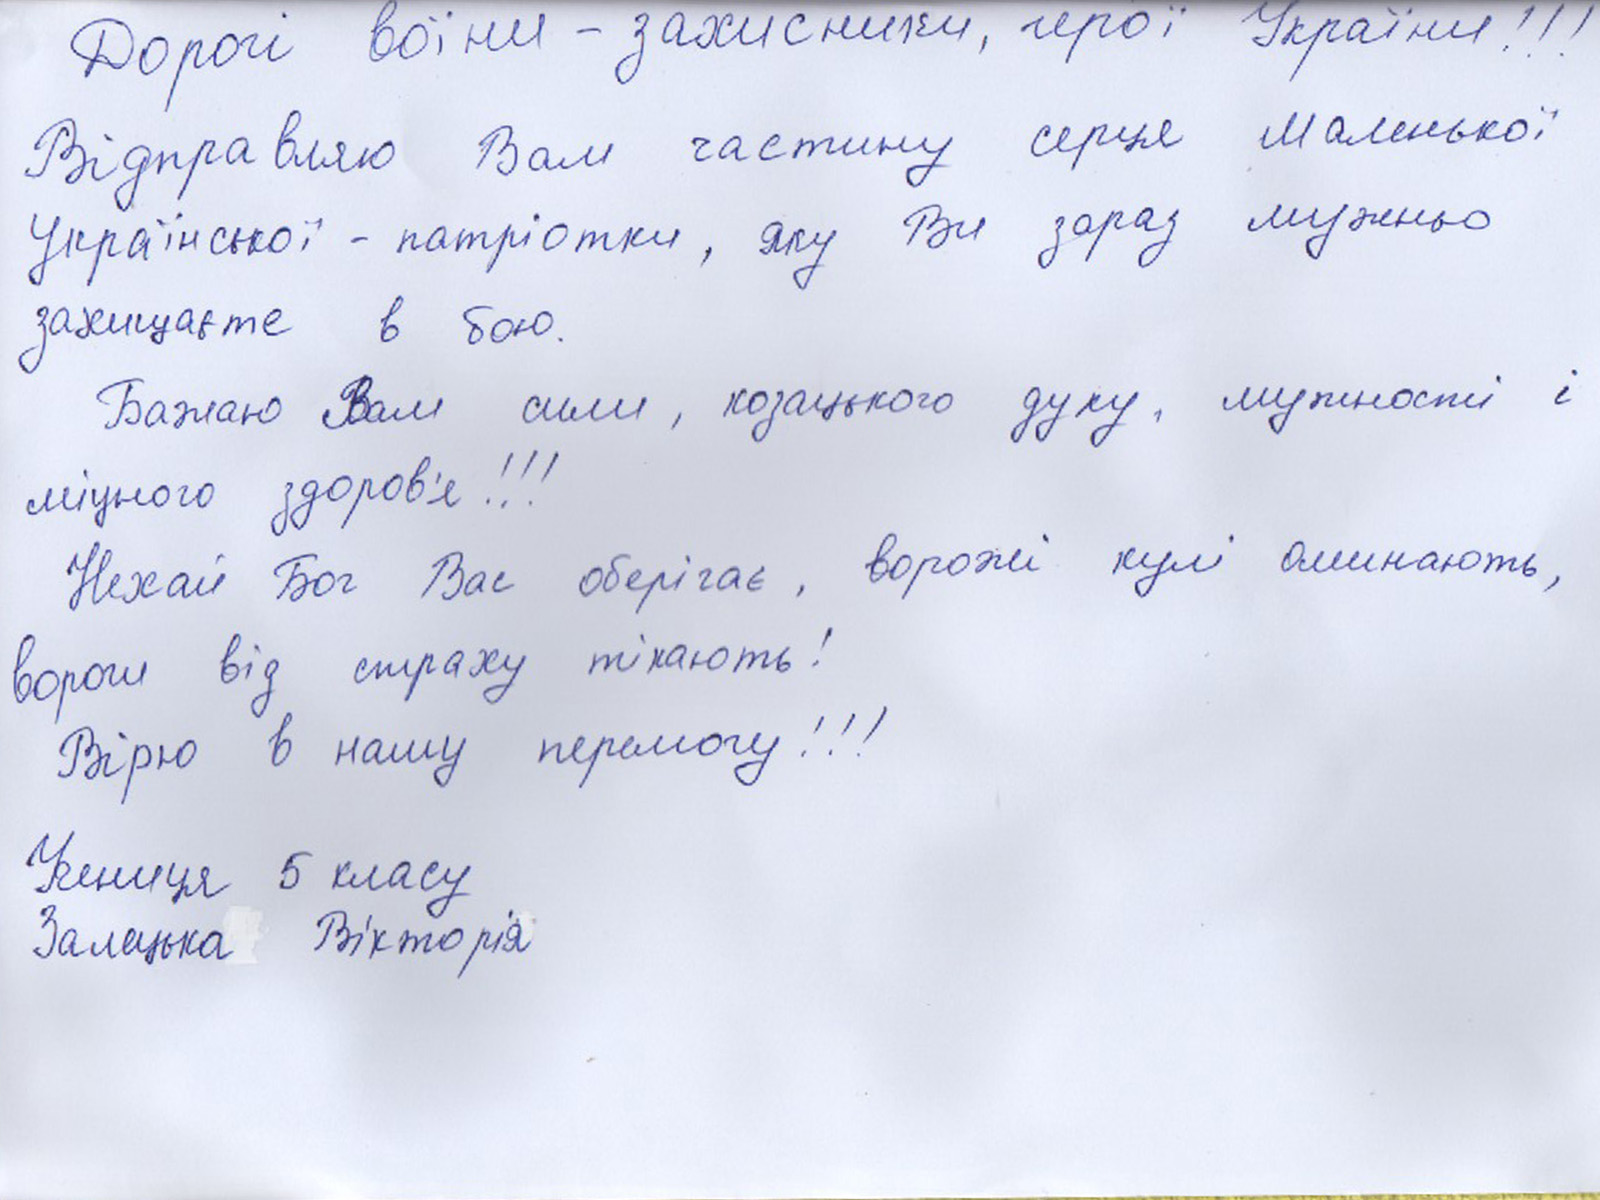 Дорогі воїни - захисники, герої України!!!
Відправляю Вам частину серця маленької
Української - патріотки, яку Ви зараз мужньо
захищаєте в бою.
Бажаю Вам сили, козацького духу, мужності і
міцного здоров'я!!!
Нехай Бог Вас оберігає, ворожі кулі оминають,
вороги від страху тікають!
Вірю в нашу перемогу!!!
Учениця 5 класу
Залецька Вікторія